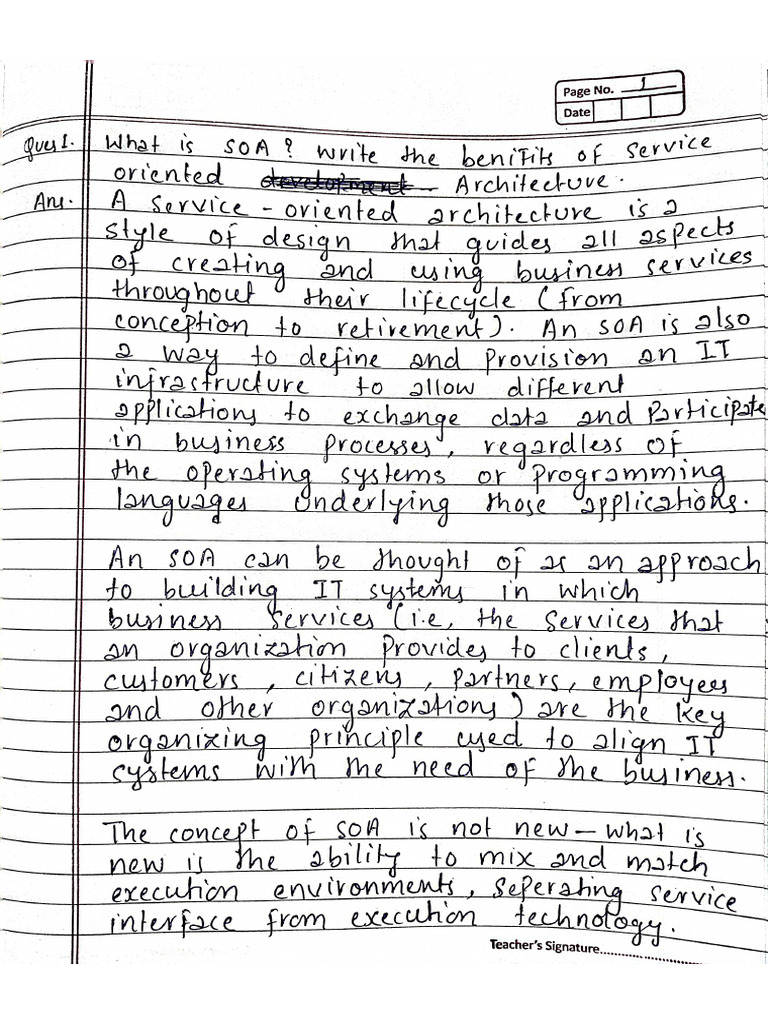 Page No. 1
Date
Ques 1. What is SOA? Write the benifits of service
oriented development Architecture.
Ans. A service-oriented architecture is a
style of design that guides all aspects
of creating and using business services
throughout their lifecycle (from
conception to retirement). An SOA is also
a way to define and provision an IT
infrastructure to allow different
applications to exchange data and Participate
in business processes, regardless of
the operating systems or programming
languages underlying those applications.
An SOA can be thought of as an approach
to building IT systems in which
business services (i.e, the services that
an organization provides to clients,
customers, citizens, partners, employees
and other organizations) are the key
organizing principle used to align IT
systems with the need of the business.
The concept of SOA is not new - what is
new is the ability to mix and match
execution environments, seperating service
interface from execution technology.
Teacher's Signature....................